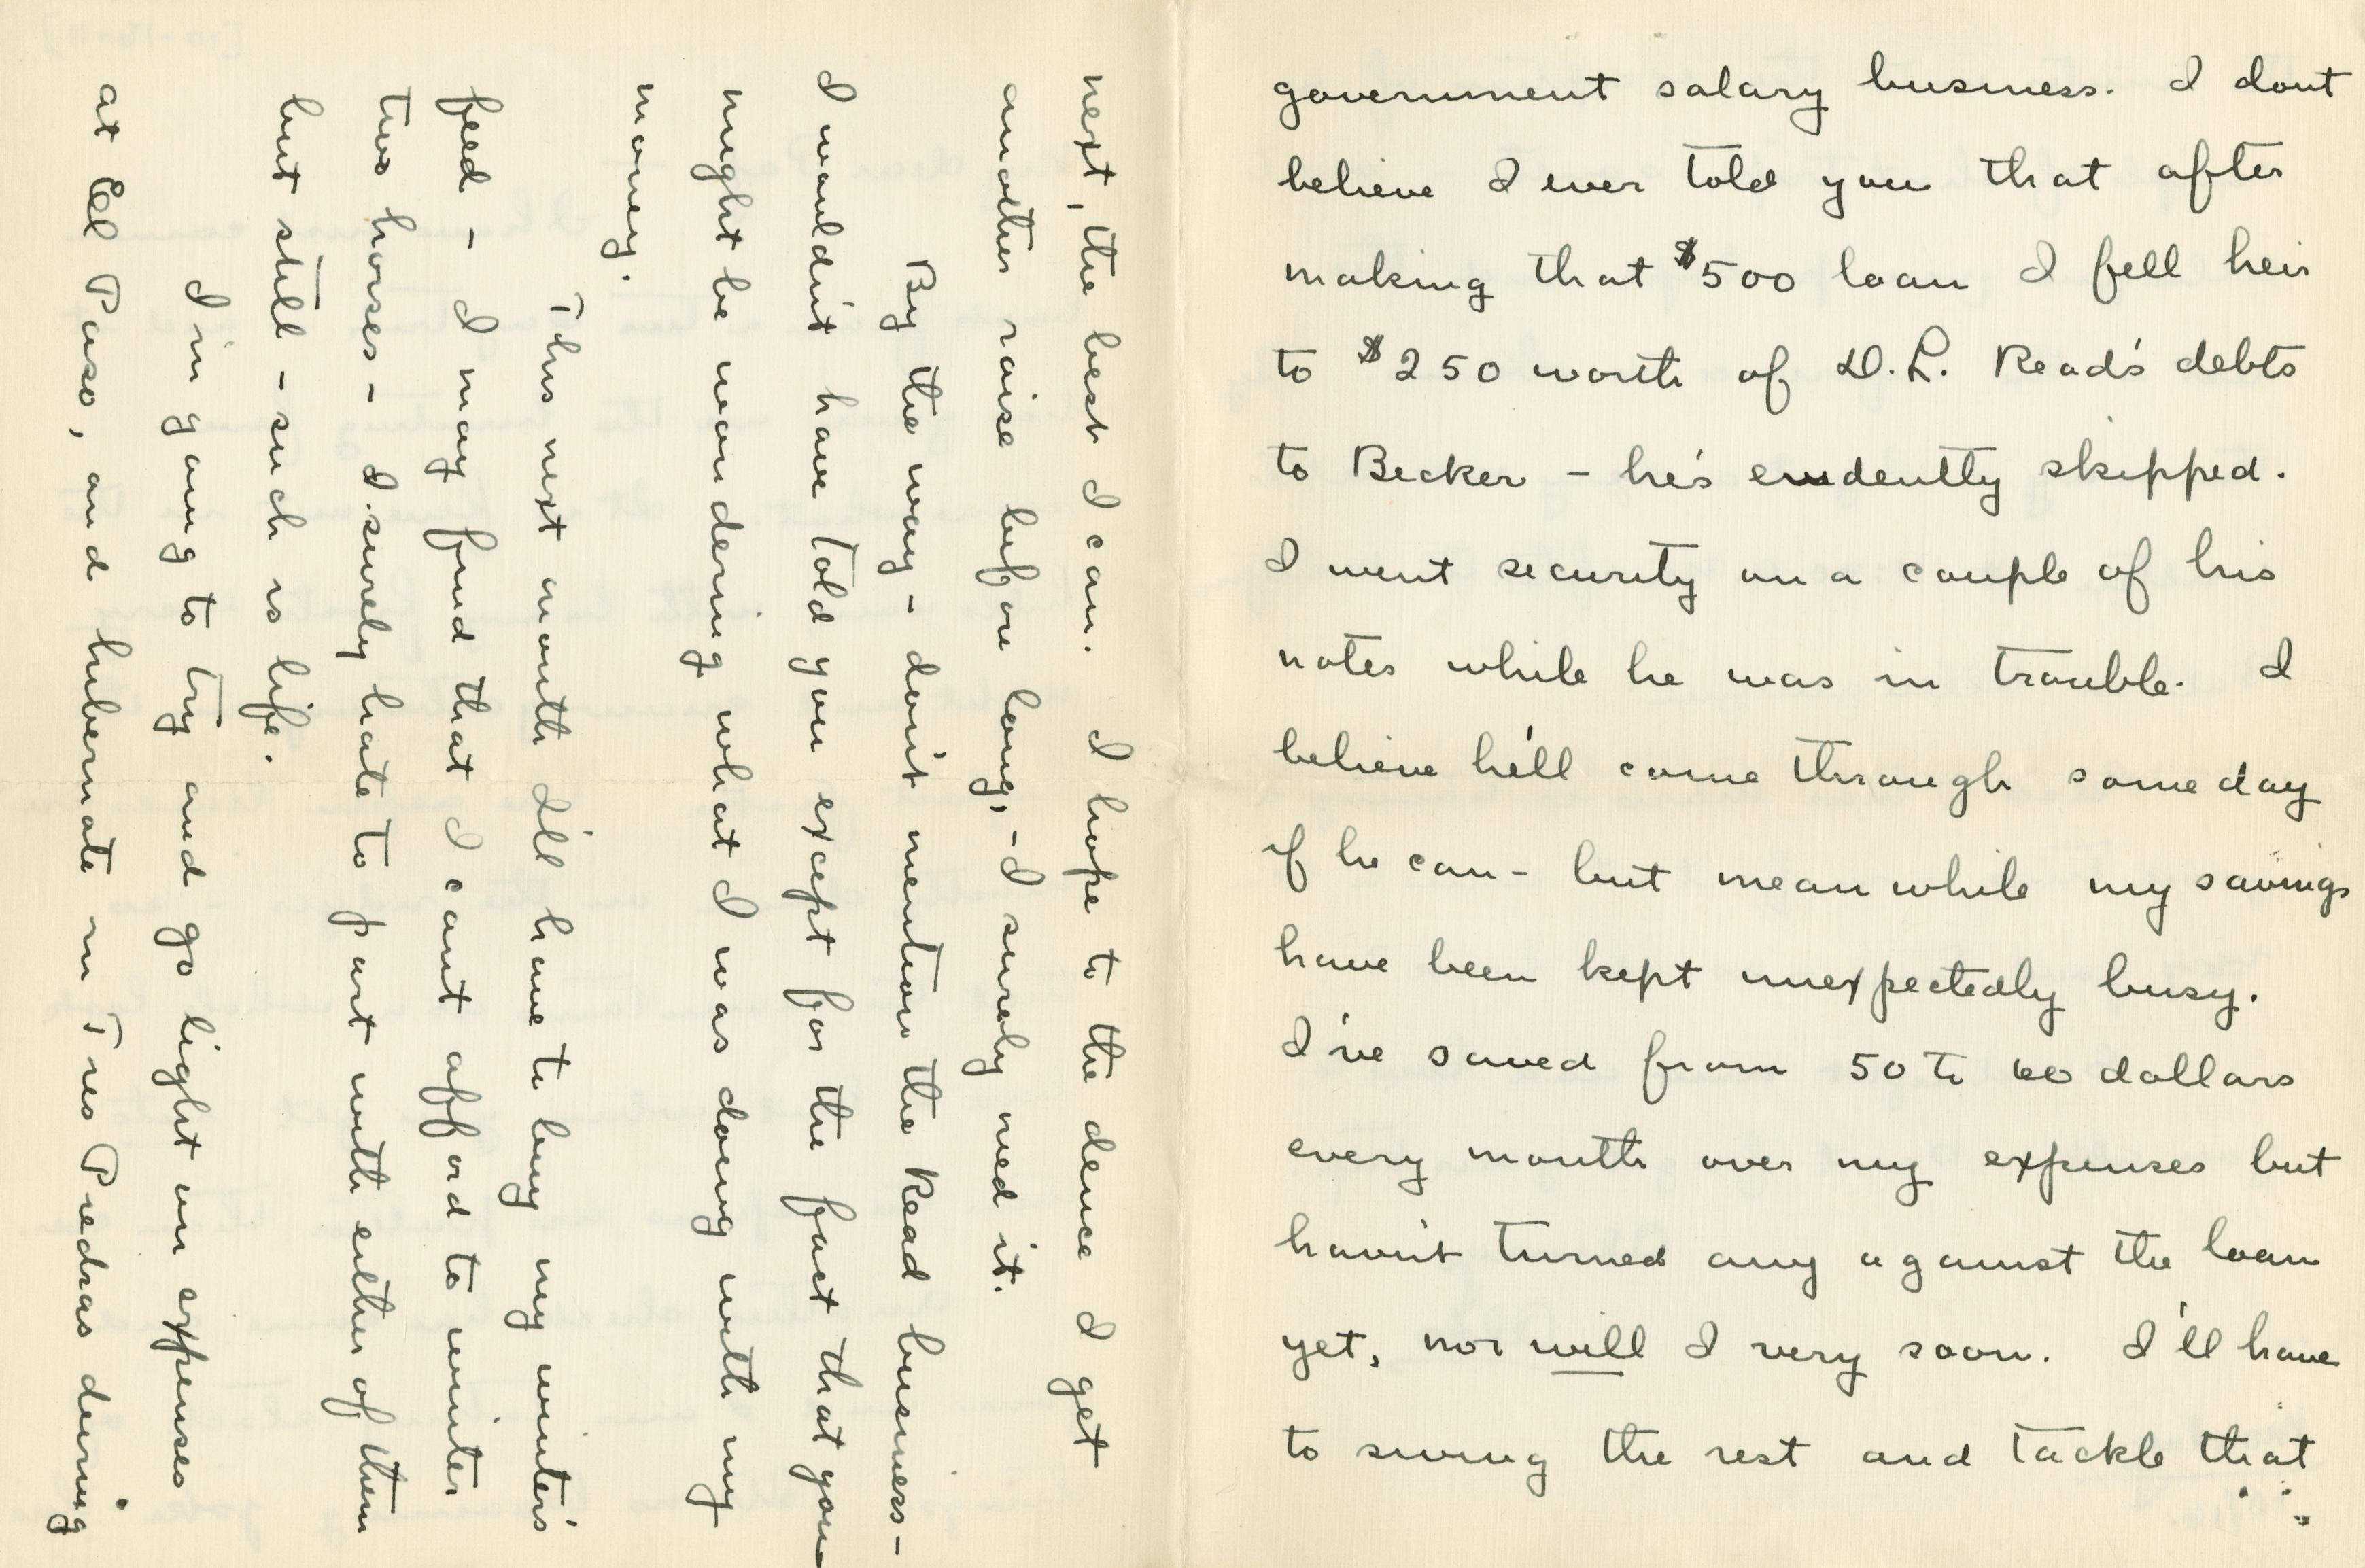 government salary business. I dont
believe I ever told you that after
making that $500 loan I fell heir
to $250 worth of D.L. Read's debts
to Becker - he's evidently skipped.
I went security on a couple of his
notes while he was in trouble. I
believe he'll come through some day
if he can - but meanwhile my savings
have been kept unexpectedly busy.
I've saved from 50 to 60 dollars
every month over my expenses but
havn't turned any against the loan
yet, nor will I very soon. I'll have
to swing the rest and tackle that
next, the best I can. I hope to the deuce I get
another raise before long, - I surely need it.
By the way - don't mention the Read business -
I wouldn't have told you except for the fact that you
might be wondering what I was doing with my
money.
This next month I'll have to buy my winter's
feed - I may find that I cant afford to winter
two horses - I surely hate to part with either of them
but still - such is life.
I'm going to try and go light on expenses
at El Paso, and hibernate in Tres Piedras during